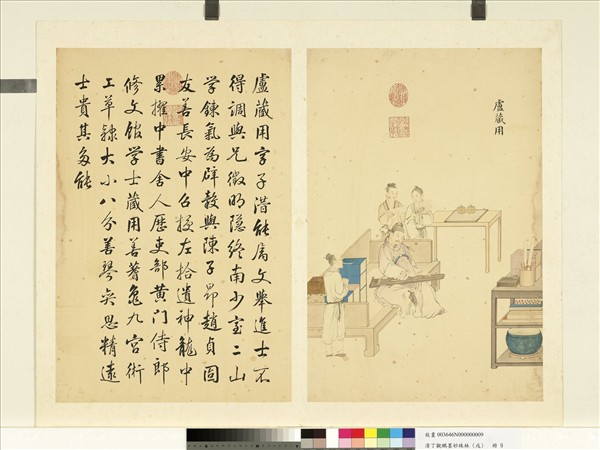 盧藏用
盧藏用字子潛能屬文舉進士不
得調與兄徵明隱終南少室二山
学鍊氣為辟穀與陳子昂趙貞固
友善長安中召授左拾遺神龍中
累擢中書舍人歷吏部黃門侍郎
修文館学士藏用善蓍龜九宮術
工草隸大小八分善琴弈思精遠
士貴其多能
故畫 003646N000000009
清丁觀鵬墨妙珠林（戌） 冊 9